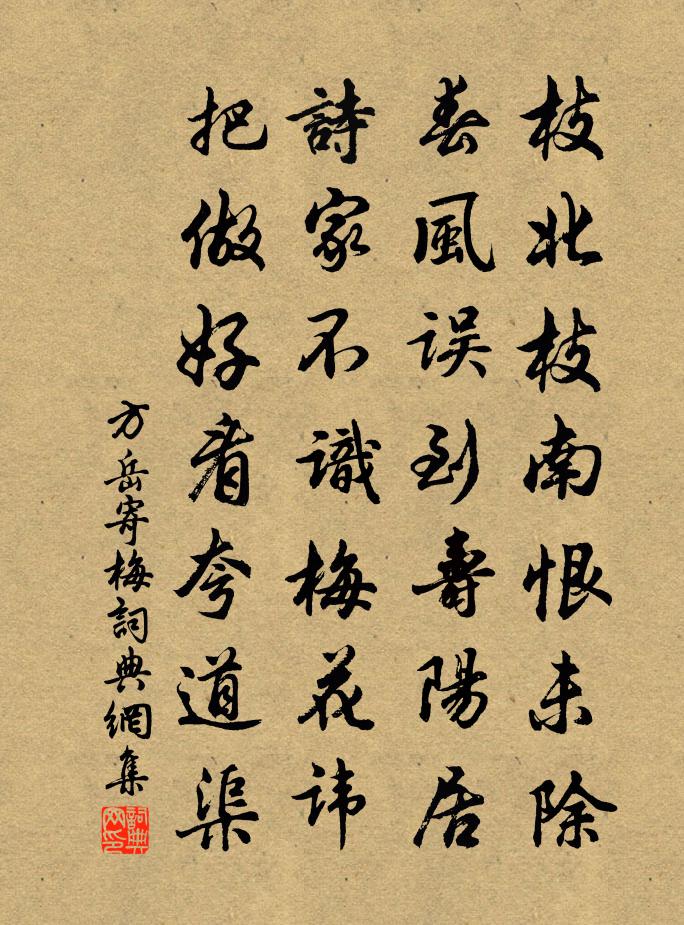 枝北枝南恨未除
春風误到壽陽居
詩家不識梅花讳
把做好看夸道渠
方岳寄梅詞典網集
詞典網印